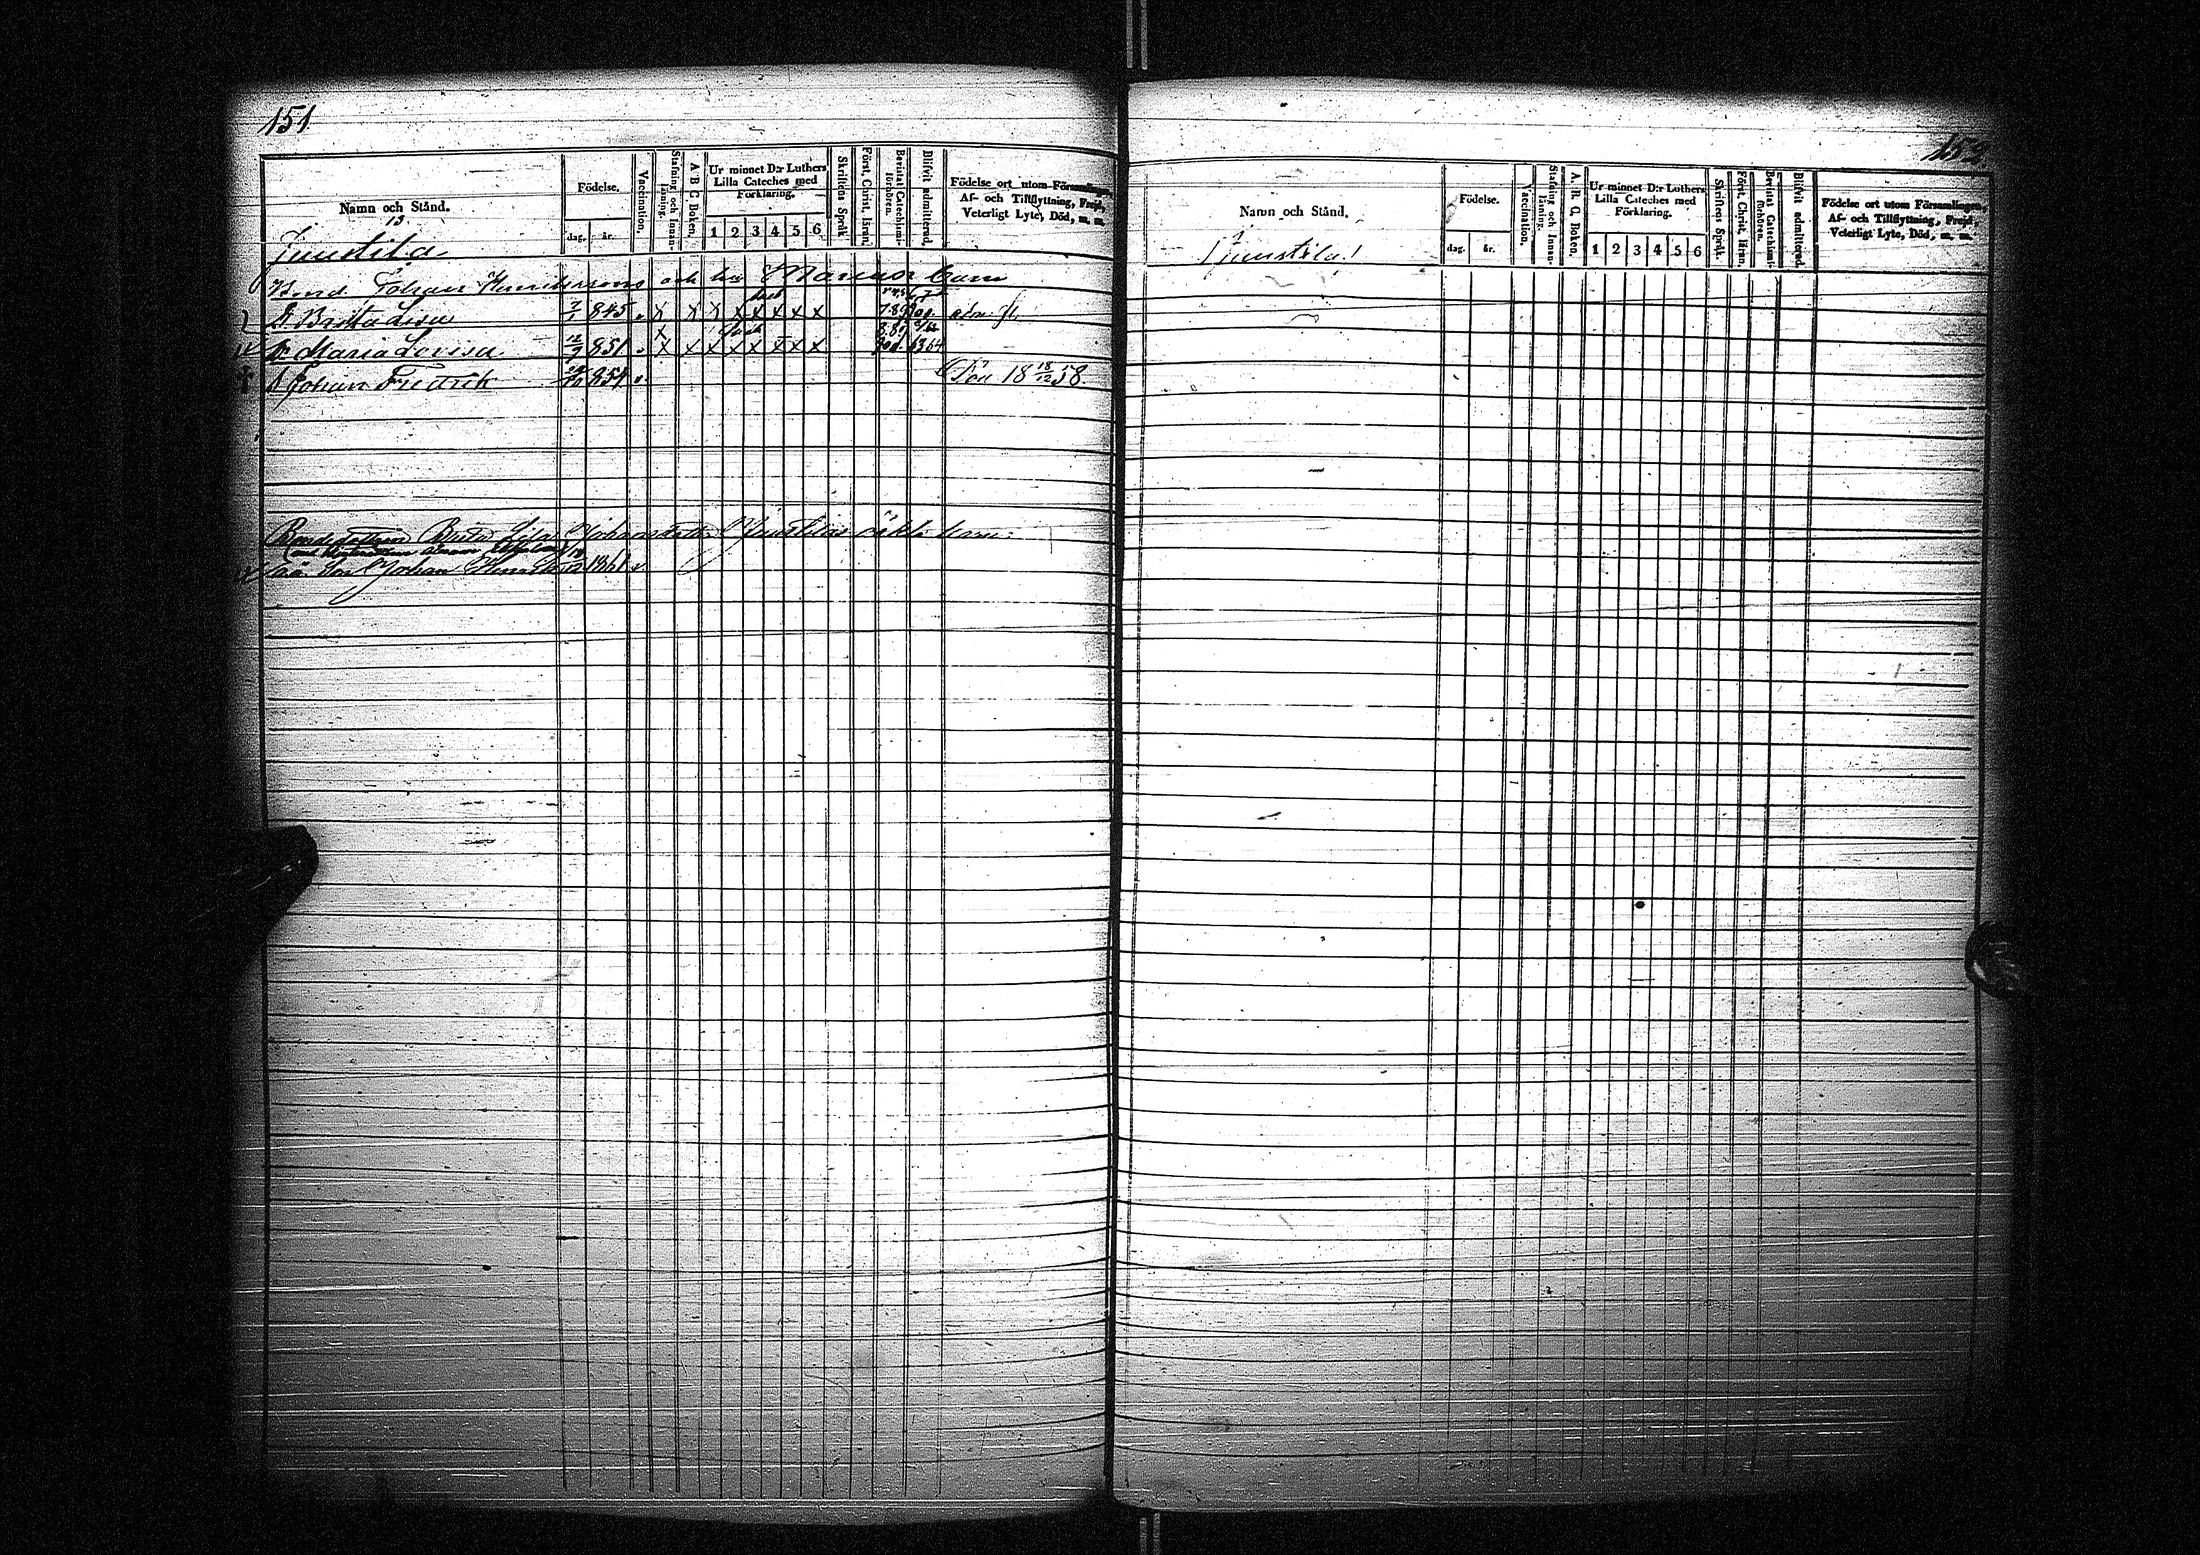 151
Namn och Stånd.
Födelse.
dag.
år.
Vaccination.
Stafning och Innan-läsning.
A B C Boken.
Ur minnet D:r Luthers
Lilla Cateches med
Förklaring.
1 2 3 4 5 6
Skriftens Språk
Först. Christ. läran.
Bevistat Catechismi-förhören.
Blifvit admitterad.
Födelse ort utom Församlingen,
Af- och Tillflyttning, Frejd,
Veterligt Lyte, Död, m. m.
13
Juustila
Bond Johan Henrikssons och hu Marias barn
D. Brita Lisa 845 X X X X X X X X
D. Maria Lovisa 12/9 851 X X X X X X X X 63 64
S Johan Fredrik 854 Död 18 18/12 58.
Bondedottern Brita Lisa Johansdotter Juustilas oäkta barn
Son Johan Henrik 1861
153
Namn och Stånd.
Födelse.
dag.
år.
Vaccination.
Stafning och Innan-läsning.
A. B. C. Boken.
Ur minnet D:r Luthers
Lilla Cateches med
Förklaring.
1 2 3 4 5 6
Skriftens Språk.
Först. Christ. läran.
Bevistat Catechismi-förhören.
Blifvit admitterad.
Födelse ort utom Församlingen,
Af- och Tillflyttning, Frejd,
Veterligt Lyte, Död, m. m.
Juustila